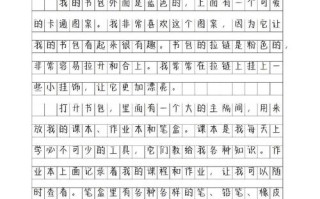 我的书包外面是蓝色的，上面有一个可爱
的卡通图案。我非常喜欢这个图案，因为它让
我的书包看起来很有趣。书包的拉链是粉色的，
非常容易拉开和合上。我常常在拉链上挂上一
些小挂饰，让它更加漂亮。
打开书包，里面有一个大的主隔间，用来
放我的课本、作业本和笔盒。课本是我每天上
学必不可少的工具，它们教给我各种知识。作
业本上面记录着我的课程和作业，让我可以随
时查看。笔盒里有各种各样的笔、铅笔、橡皮